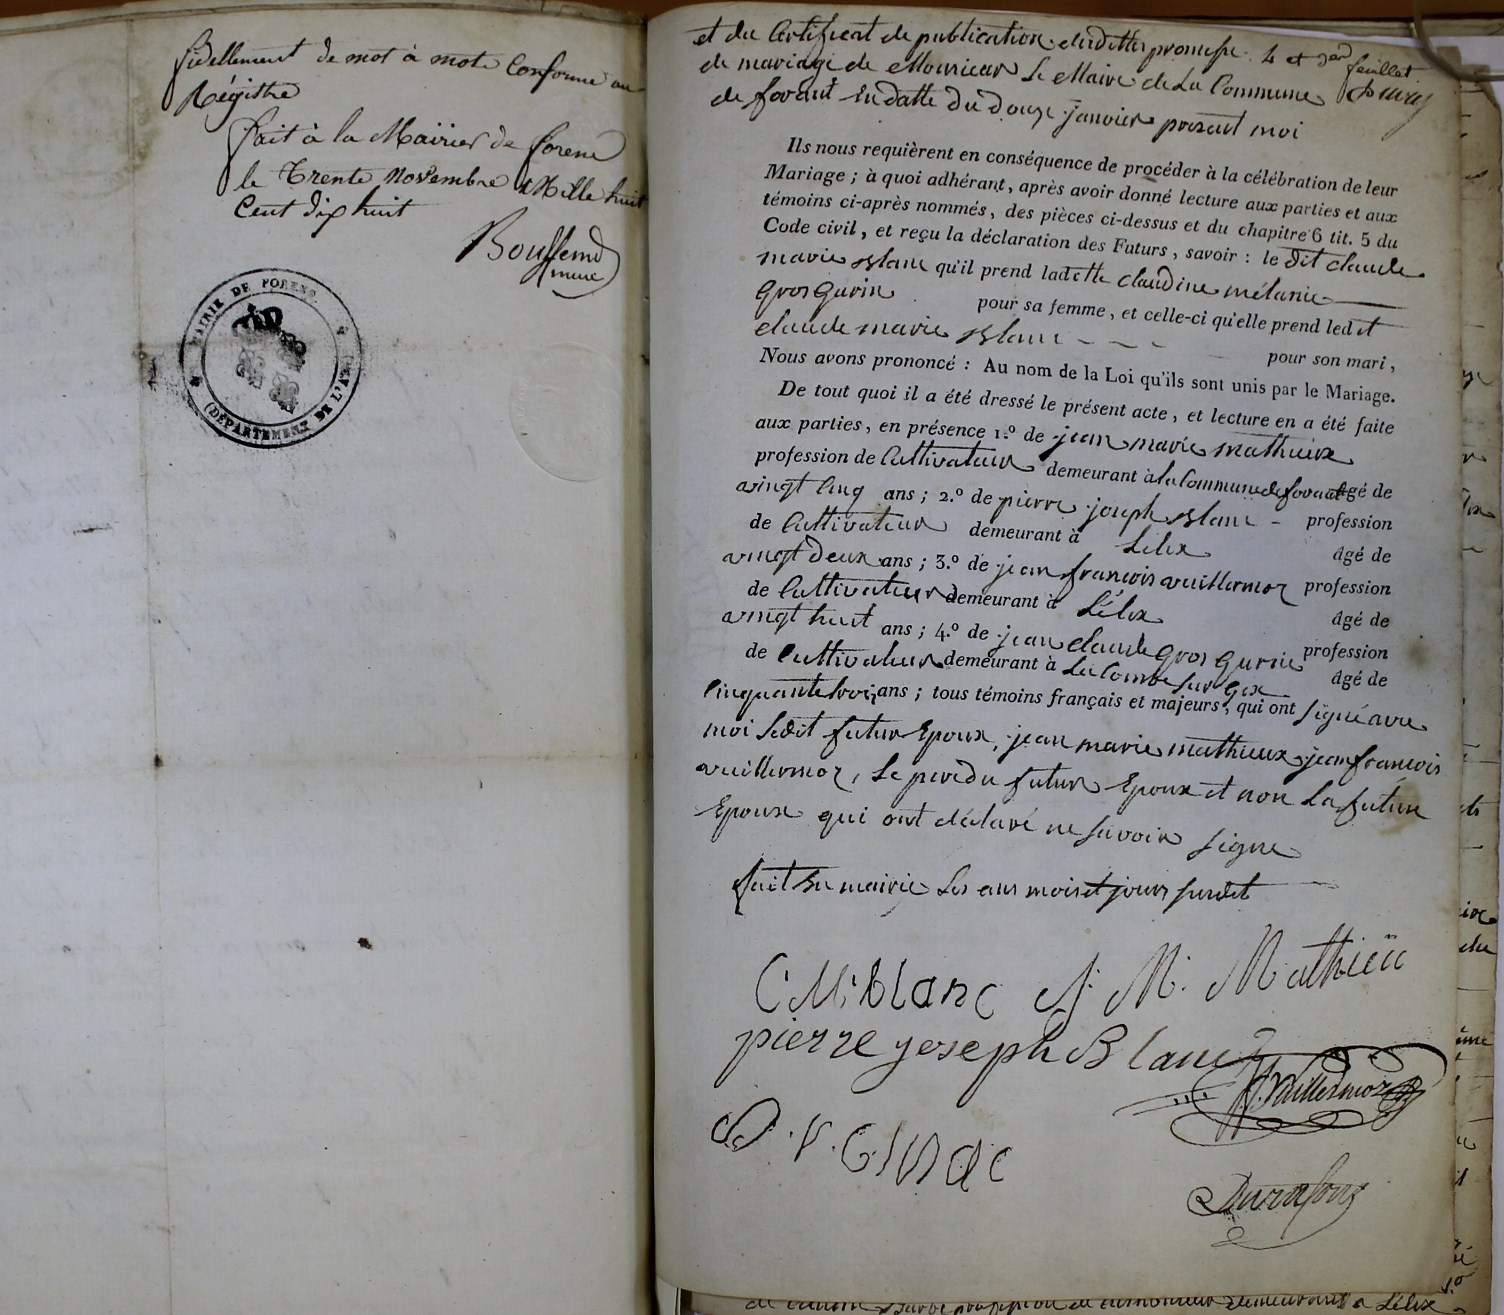 fidellement de mot à mote Conforme au
Régithre
fait à la Maïrier de forene
le Trente Novembre Mille huit
Cent dix huit
maire
MAIRIE DE FORENS
(DÉPARTEMENT DE L'AIN)
et du Certificat de publication dudittes promesse 4 et der feuillet
de mariage de Monsieur Le Maire de La Commune
de forant En datte du Douze janvier present moi
Ils nous requièrent en conséquence de procéder à la célébration de leur
Mariage ; à quoi adhérant, après avoir donné lecture aux parties et aux
témoins ci-après nommés, des pièces ci-dessus et du chapitre 6 tit. 5 du
Code civil, et reçu la déclaration des Futurs, savoir : le dit claude
marie Blanc qu'il prend ladette claudine mélanie
Gros Gurin pour sa femme, et celle-ci qu'elle prend ledit
claude marie Blanc pour son mari,
Nous avons prononcé : Au nom de la Loi qu'ils sont unis par le Mariage.
De tout quoi il a été dressé le présent acte, et lecture en a été faite
aux parties, en présence 1.º de jean marie mathieux
profession de Cultivateur demeurant à la Commune de forant âgé de
vingt Cinq ans ; 2.º de pierre joseph Blanc - profession
de Cultivateur demeurant à Lelex âgé de
vingt Deux ans ; 3.º de jean francois vuillermoz profession
de Cultivateur demeurant à Lélex âgé de
vingt huit ans ; 4.º de jean claude Gros Gurin profession
de Cultivateur demeurant à La Combe sur Gex âgé de
Cinquante trois ans ; tous témoins français et majeurs, qui ont signé avec
moi Ledit futur Epoux, jean marie mathieux jean francois
vuillermoz, Le pere du futur Epoux et non La future
Epouse qui ont déclaré ne savoir signe
fait En mairie Les ans mois et jours susdit
C M blanc J. M. Mathieu
pierre joseph Blanc
J F Vuillermoz
Durafour